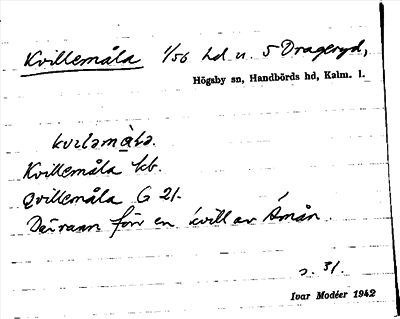 Kvillemåla 1/56 hd u 5 Drageryd,
Högsby sn, Handbörds hd, Kalm. l.
kvilamåla.
Kvillemåla kb.
Qvillemåla G 21.
Där rann förr en kvill av Åmån.
s. 31.
Ivar Modéer 1942